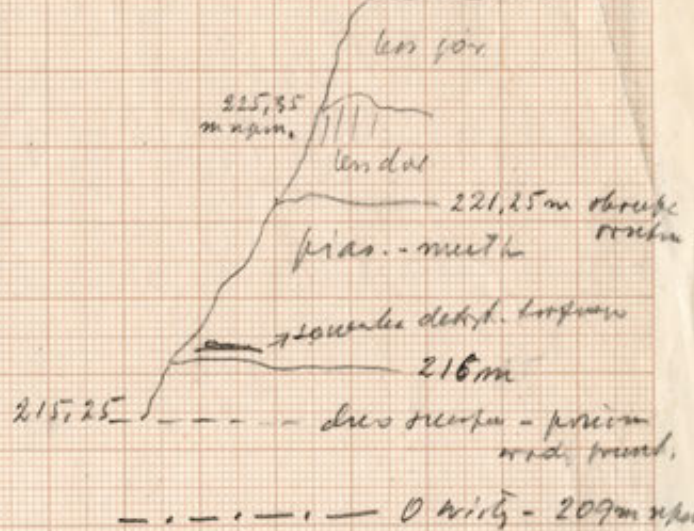 less gór.
225,35
m npm.
less dol
221,25 m
pias. - mułk
soczewka detryt. torfowego
216 m
215,25
dno - poziom
wody grunt.
0 Wisły - 209 m npm